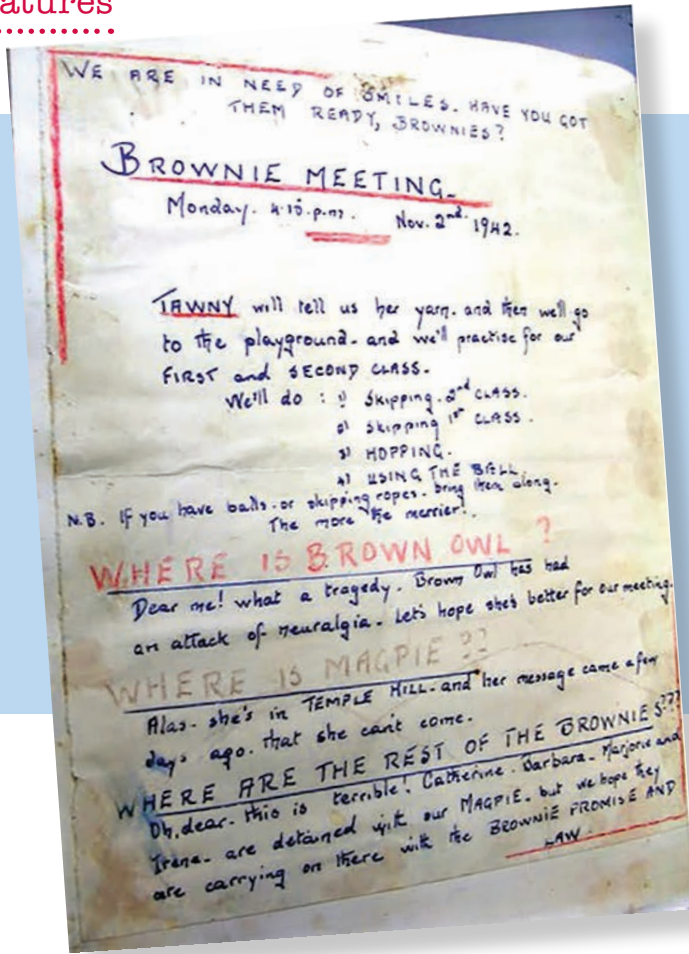 atures
WE ARE IN NEED OF SMILES. HAVE YOU GOT
THEM READY, BROWNIES?
BROWNIE MEETING.
Monday. 4.15.p.m. Nov. 2nd 1942.
TAWNY will tell us her yarn. and then we'll go
to the playground. and we'll practise for our
FIRST and SECOND CLASS.
We'll do : 1) Skipping. 2nd CLASS.
2) Skipping 1st CLASS.
3) HOPPING.
4) USING THE BALL.
N.B. If you have balls. or skipping ropes. bring them along.
The more the merrier!
WHERE IS BROWN OWL ?
Dear me! what a tragedy. Brown Owl has had
an attack of neuralgia. Let's hope she's better for our meeting.
WHERE IS MAGPIE ??
Alas. she's in TEMPLE HILL. and her message came a few
days ago. that she can't come.
WHERE ARE THE REST OF THE BROWNIES???
Oh, dear. this is terrible! Catherine. Barbara. Marjorie and
Irene. are detained with our MAGPIE. but we hope they
are carrying on there with the BROWNIE PROMISE AND
LAW.